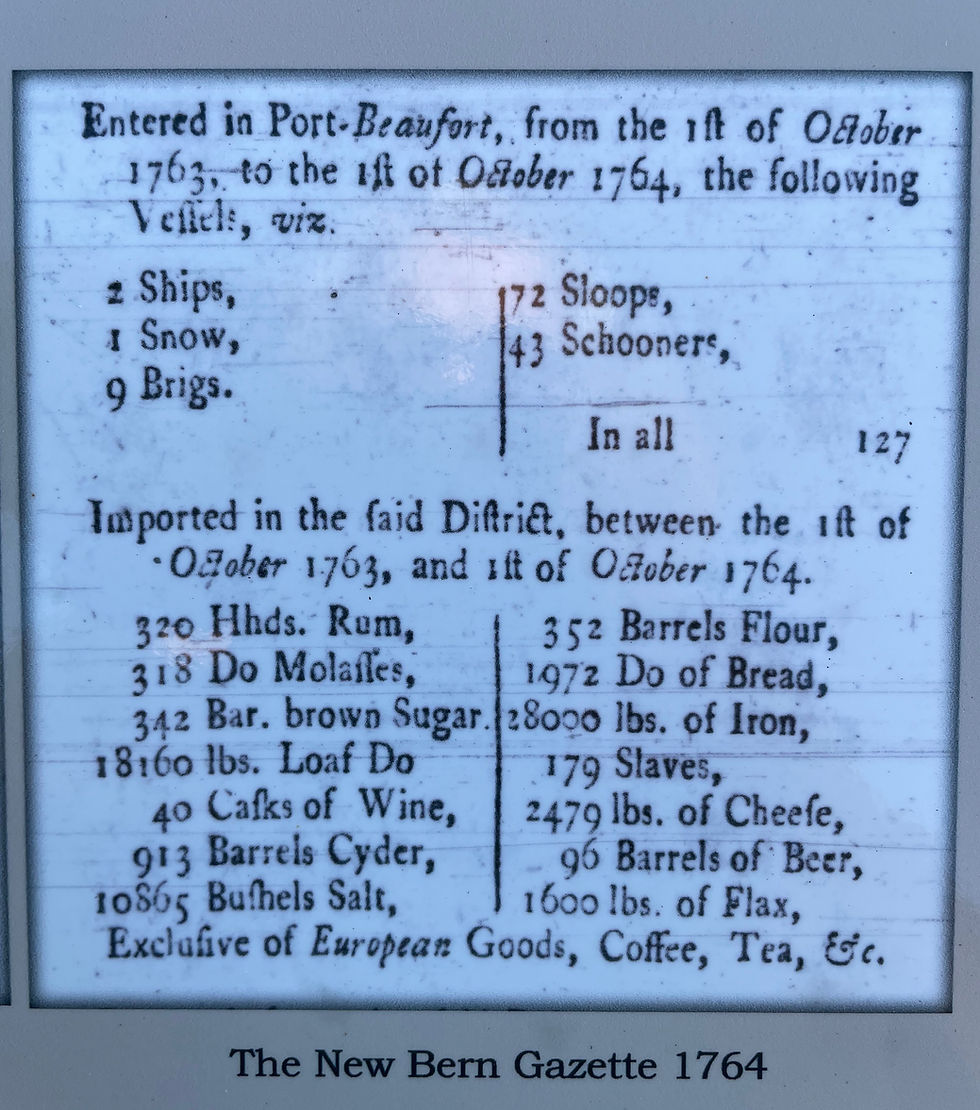 Entered in Port-Beaufort, from the 1ſt of October
1763, to the 1ſt of October 1764, the following
Veſſels, viz.
2 Ships,
1 Snow,
9 Brigs.
72 Sloops,
43 Schooners,
In all 127
Imported in the ſaid Diſtrict, between the 1ſt of
October 1763, and 1ſt of October 1764.
320 Hhds. Rum,
318 Do Molaſſes,
342 Bar. brown Sugar.
18160 lbs. Loaf Do
40 Caſks of Wine,
913 Barrels Cyder,
10865 Buſhels Salt,
352 Barrels Flour,
1972 Do of Bread,
28000 lbs. of Iron,
179 Slaves,
2479 lbs. of Cheeſe,
96 Barrels of Beer,
1600 lbs. of Flax,
Excluſive of European Goods, Coffee, Tea, &c.
The New Bern Gazette 1764